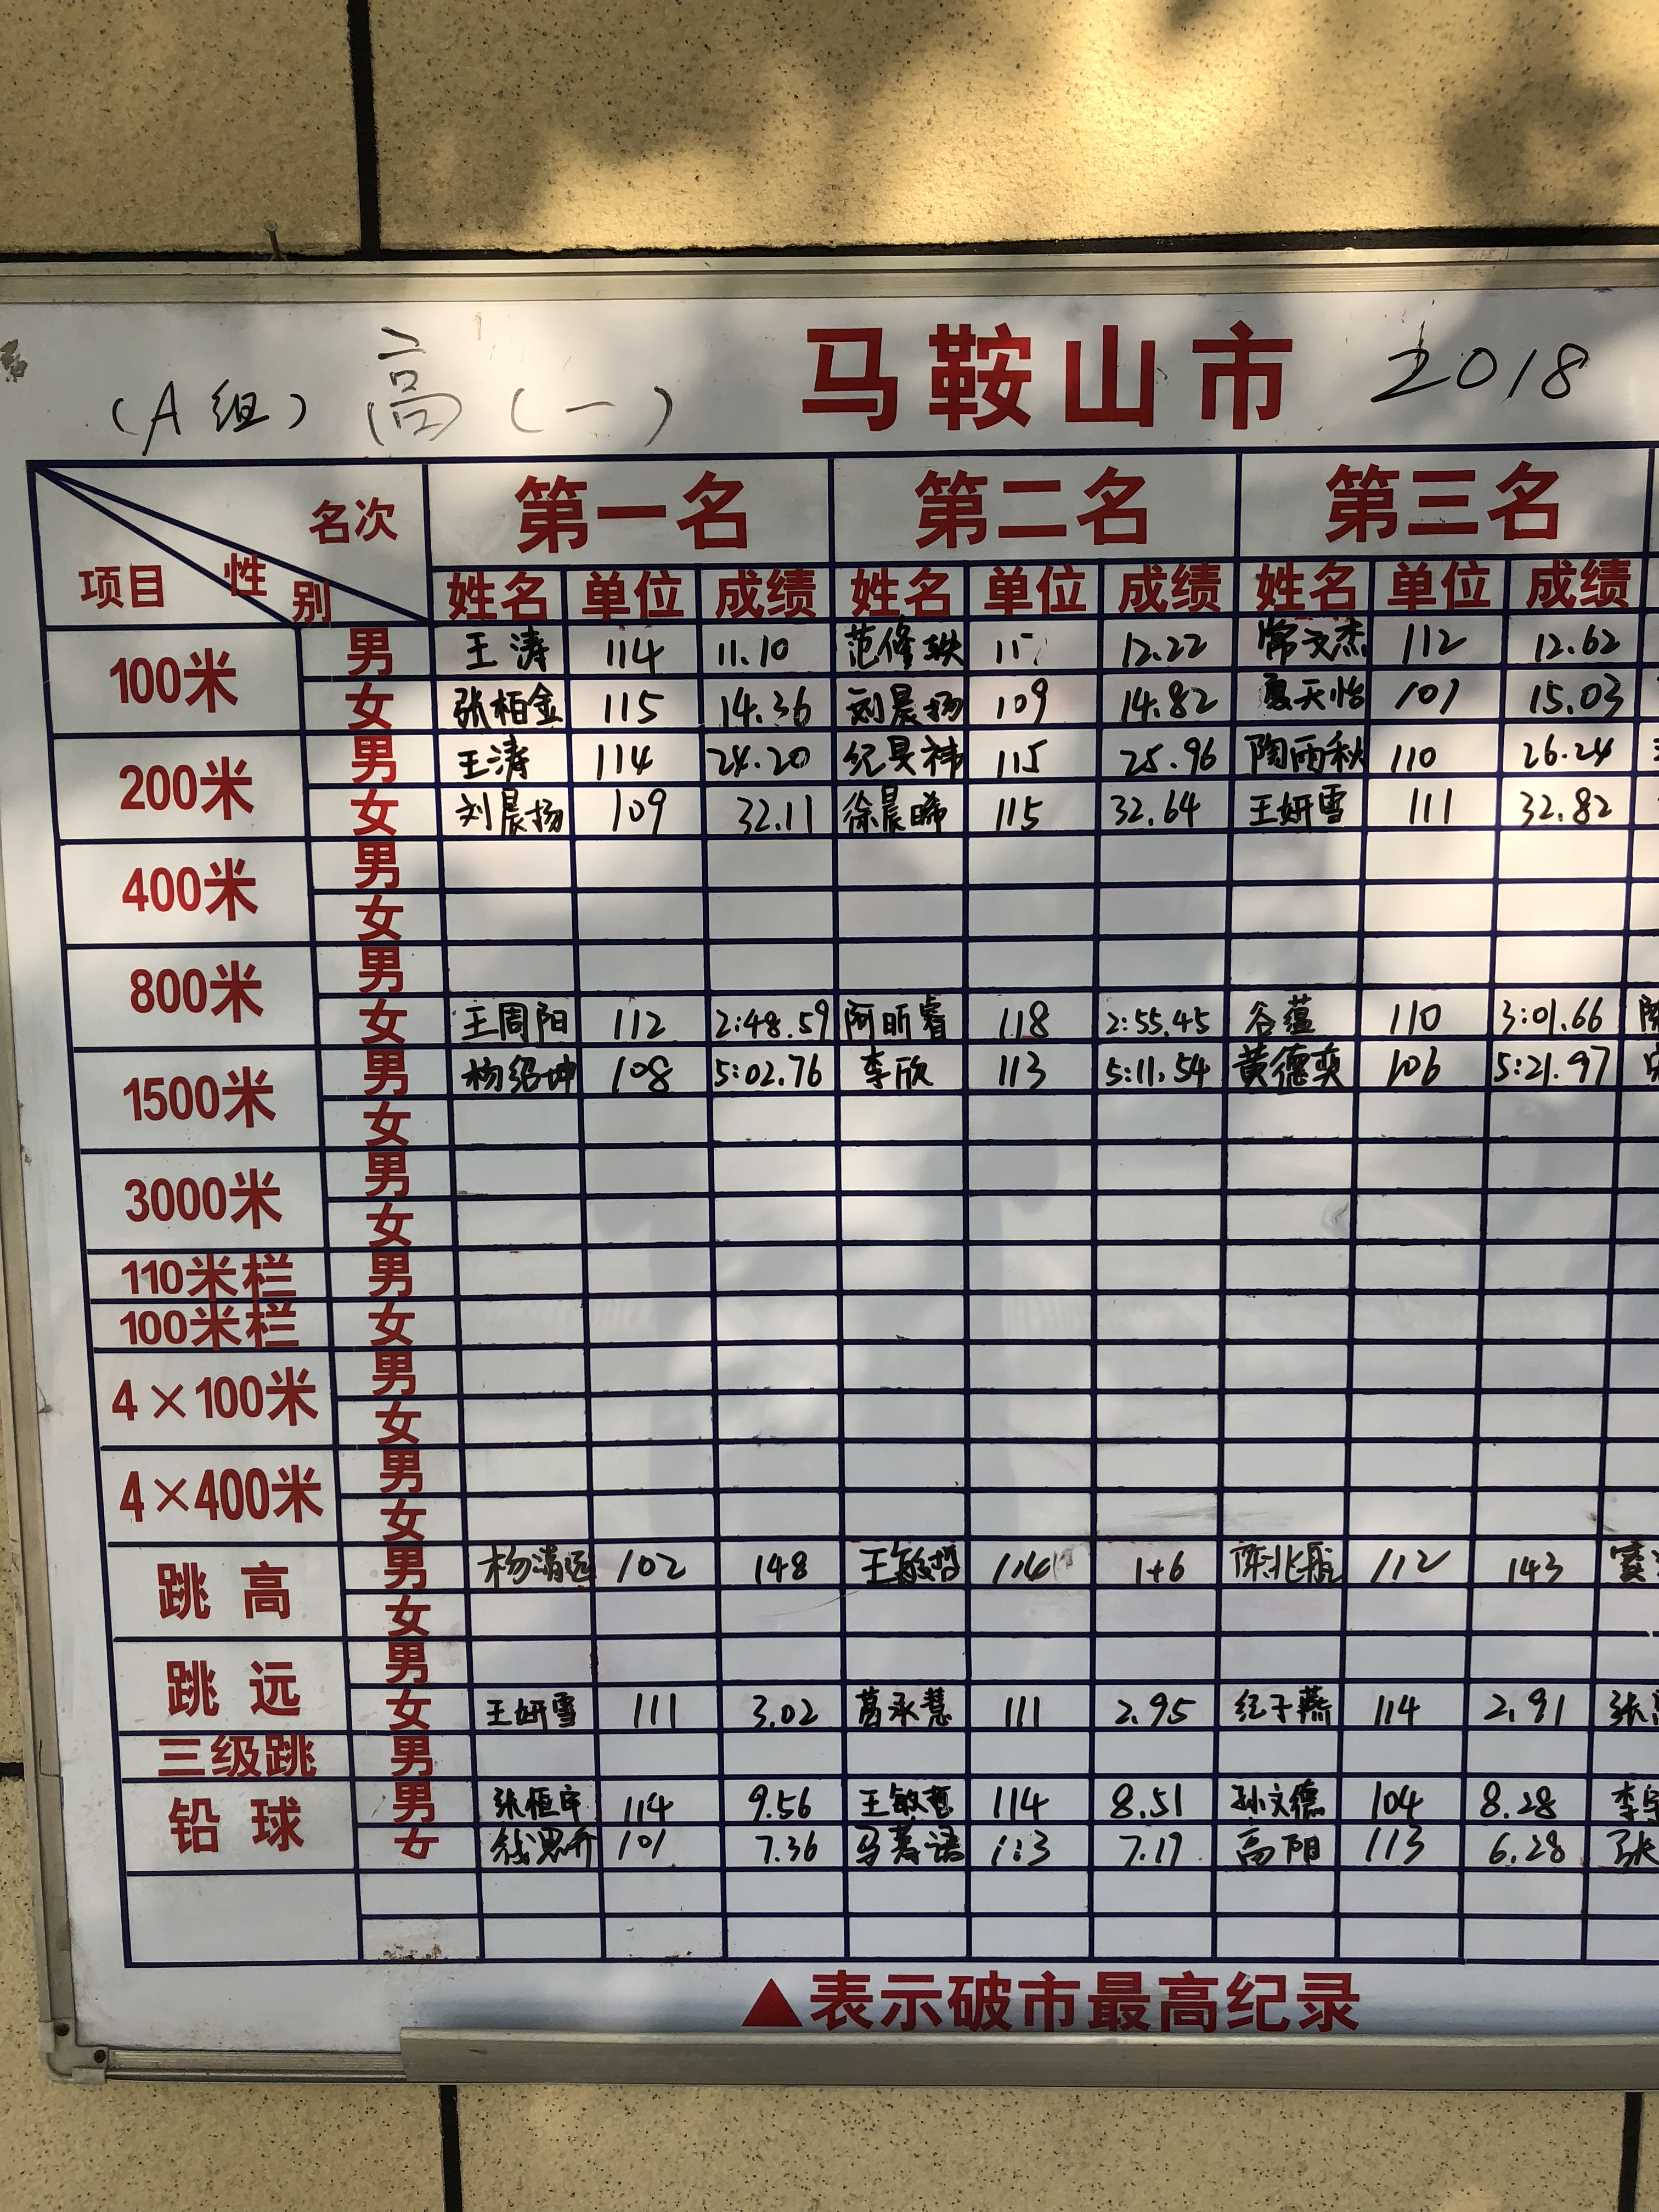 马鞍山市 2018
(A组) 高(一)
名次 第一名 第二名 第三名
项目 性别 姓名 单位 成绩 姓名 单位 成绩 姓名 单位 成绩
100米 男 王涛 114 11.10 范修轶 12.22 常文杰 112 12.62
女 张柏金 115 14.36 刘晨扬 109 14.82 夏天怡 101 15.03
200米 男 王涛 114 24.20 纪昊祎 115 25.96 陶雨秋 110 26.24
女 刘晨扬 109 32.11 徐晨晞 115 32.64 王妍雪 111 32.82
400米 男
女
800米 男
女 王周阳 112 2:48.59 阿昕睿 118 2:55.45 谷蕴 110 3:01.66
1500米 男 杨绍坤 108 5:02.76 李欣 113 5:11.54 黄德奕 106 5:21.97
女
3000米 男
女
110米栏 男
100米栏 女
4×100米 男
女
4×400米 男
女
跳高 男 杨清远 102 148 王敏哲 114 146 陈兆航 112 143
女
跳远 男
女 王妍雪 111 3.02 葛承慧 111 2.95 纪子燕 114 2.91
三级跳 男
铅球 男 张恒宇 114 9.56 王敏哲 114 8.51 孙文德 104 8.28
女 钱思乔 101 7.36 马 语 113 7.17 高阳 113 6.28
▲表示破市最高纪录